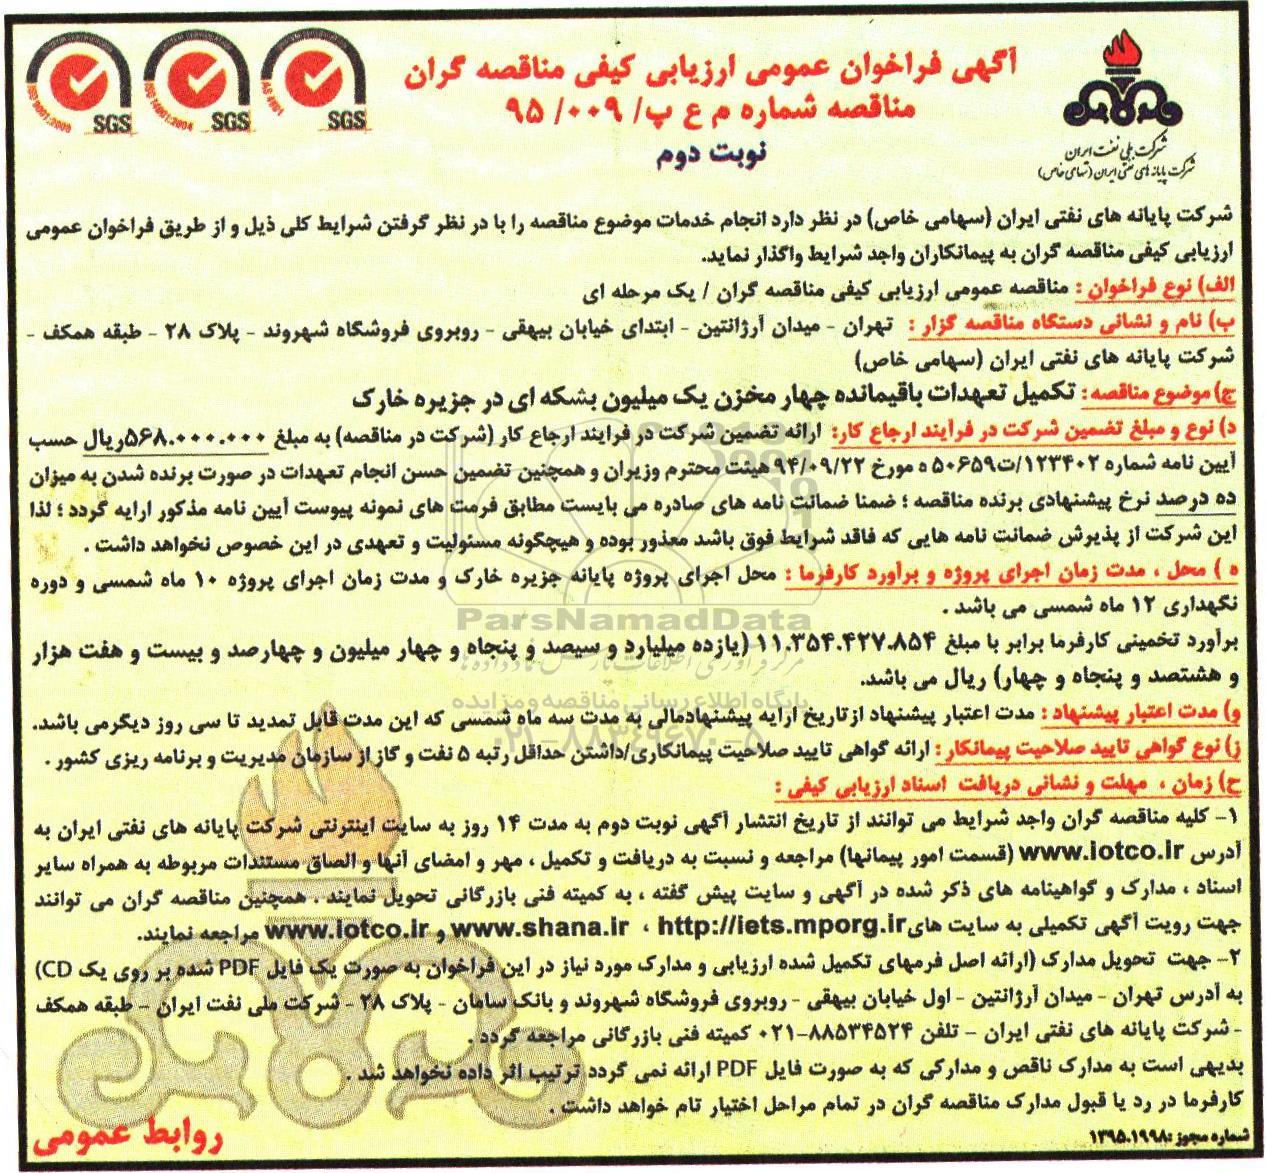 آگهی فراخوان عمومی ارزیابی کیفی مناقصه گران
مناقصه شماره م ع پ/ ۰۰۹/ ۹۵
نوبت دوم
SGS SGS SGS
شرکت ملی نفت ایران
شرکت پایانه های نفتی ایران (سهامی خاص)
شرکت پایانه های نفتی ایران (سهامی خاص) در نظر دارد انجام خدمات موضوع مناقصه را با در نظر گرفتن شرایط کلی ذیل و از طریق فراخوان عمومی
ارزیابی کیفی مناقصه گران به پیمانکاران واجد شرایط واگذار نماید.
الف) نوع فراخوان : مناقصه عمومی ارزیابی کیفی مناقصه گران / یک مرحله ای
ب) نام و نشانی دستگاه مناقصه گزار : تهران - میدان آرژانتین - ابتدای خیابان بیهقی - روبروی فروشگاه شهروند - پلاک ۲۸ - طبقه همکف -
شرکت پایانه های نفتی ایران (سهامی خاص)
ج) موضوع مناقصه: تکمیل تعهدات باقیمانده چهار مخزن یک میلیون بشکه ای در جزیره خارک
د) نوع و مبلغ تضمین شرکت در فرآیند ارجاع کار: ارائه تضمین شرکت در فرایند ارجاع کار (شرکت در مناقصه) به مبلغ ۵۶۸.۰۰۰.۰۰۰ریال حسب
آیین نامه شماره ۱۲۳۴۰۲/ت۵۰۶۵۹ ه مورخ ۹۴/۰۹/۲۲ هیئت محترم وزیران و همچنین تضمین حسن انجام تعهدات در صورت برنده شدن به میزان
ده درصد نرخ پیشنهادی برنده مناقصه ؛ ضمنا ضمانت نامه های صادره می بایست مطابق فرمت های نمونه پیوست آیین نامه مذکور ارایه گردد ؛ لذا
این شرکت از پذیرش ضمانت نامه هایی که فاقد شرایط فوق باشد معذور بوده و هیچگونه مسئولیت و تعهدی در این خصوص نخواهد داشت .
ه ) محل ، مدت زمان اجرای پروژه و برآورد کارفرما : محل اجرای پروژه پایانه جزیره خارک و مدت زمان اجرای پروژه ۱۰ ماه شمسی و دوره
نگهداری ۱۲ ماه شمسی می باشد .
برآورد تخمینی کارفرما برابر با مبلغ ۱۱.۳۵۴.۴۲۷.۸۵۴ (یازده میلیارد و سیصد و پنجاه و چهار میلیون و چهارصد و بیست و هفت هزار
و هشتصد و پنجاه و چهار) ریال می باشد.
و) مدت اعتبار پیشنهاد : مدت اعتبار پیشنهاد ازتاریخ ارایه پیشنهادمالی به مدت سه ماه شمسی که این مدت قابل تمدید تا سی روز دیگرمی باشد.
ز) نوع گواهی تایید صلاحیت پیمانکار : ارائه گواهی تایید صلاحیت پیمانکاری/داشتن حداقل رتبه ۵ نفت و گاز از سازمان مدیریت و برنامه ریزی کشور .
ح) زمان ، مهلت و نشانی دریافت اسناد ارزیابی کیفی :
۱- کلیه مناقصه گران واجد شرایط می توانند از تاریخ انتشار آگهی نوبت دوم به مدت ۱۴ روز به سایت اینترنتی شرکت پایانه های نفتی ایران به
آدرس www.iotco.ir (قسمت امور پیمانها) مراجعه و نسبت به دریافت و تکمیل ، مهر و امضای آنها و الصاق مستندات مربوطه به همراه سایر
اسناد ، مدارک و گواهینامه های ذکر شده در آگهی و سایت پیش گفته ، به کمیته فنی بازرگانی تحویل نمایند . همچنین مناقصه گران می توانند
جهت رویت آگهی تکمیلی به سایت های http://iets.mporg.ir ، www.shana.ir و www.iotco.ir مراجعه نمایند.
۲- جهت تحویل مدارک (ارائه اصل فرمهای تکمیل شده ارزیابی و مدارک مورد نیاز در این فراخوان به صورت یک فایل PDF شده بر روی یک CD)
به آدرس تهران - میدان آرژانتین - اول خیابان بیهقی - روبروی فروشگاه شهروند و بانک سامان - پلاک ۲۸ - شرکت ملی نفت ایران - طبقه همکف
- شرکت پایانه های نفتی ایران - تلفن ۸۸۵۳۴۵۲۴-۰۲۱ کمیته فنی بازرگانی مراجعه گردد .
بدیهی است به مدارک ناقص و مدارکی که به صورت فایل PDF ارائه نمی گردد ترتیب اثر داده نخواهد شد .
کارفرما در رد یا قبول مدارک مناقصه گران در تمام مراحل اختیار تام خواهد داشت .
شماره مجوز :۱۳۹۵.۱۹۹۸
روابط عمومی
ParsNamadData
پایگاه اطلاع رسانی مناقصه و مزایده